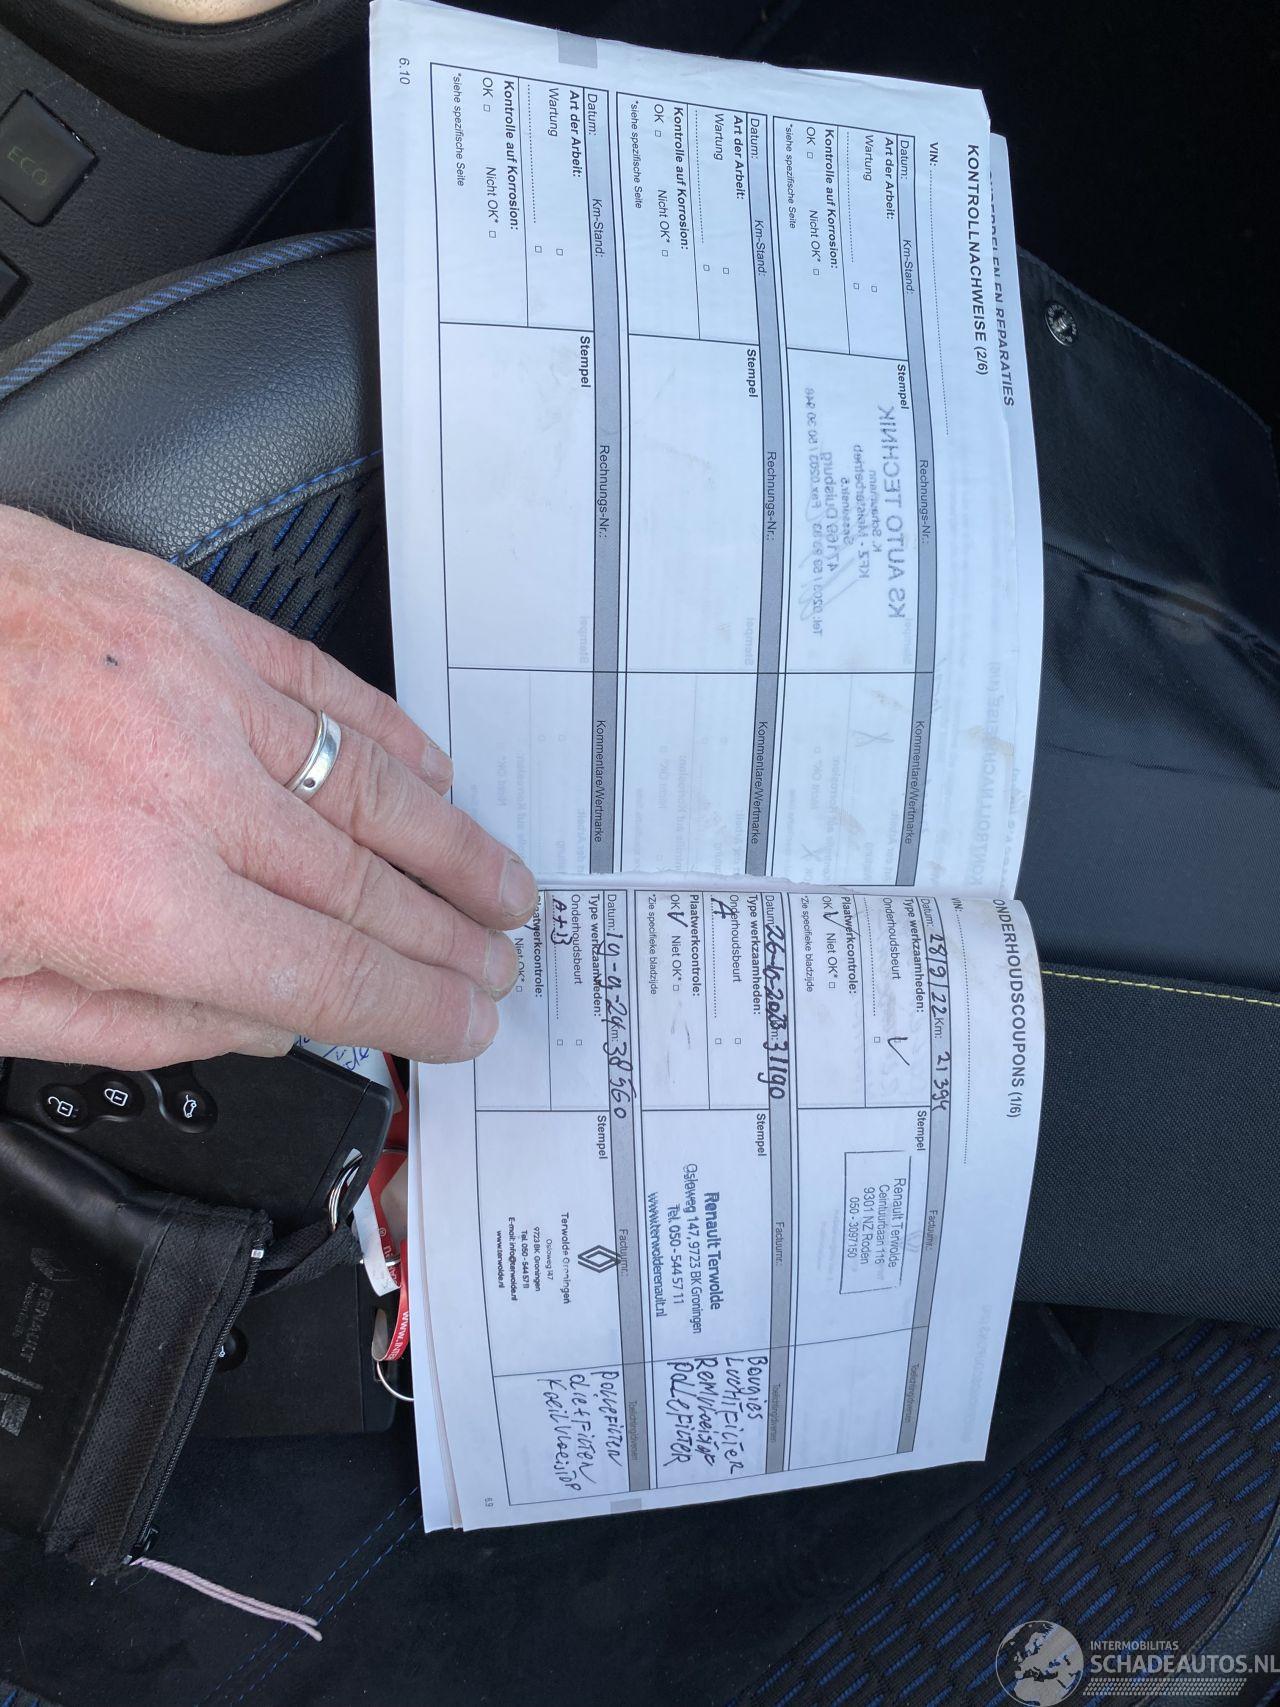 KONTROLLNACHWEISE (2/6)
VIN:
Datum: Km-Stand: Rechnungs-Nr.: Kommentare/Wertmarke
Art der Arbeit:
Wartung
Kontrolle auf Korrosion:
OK Nicht OK*
*siehe spezifische Seite
Stempel
KS AUTO TECHNIK
Datum: Km-Stand: Rechnungs-Nr.: Kommentare/Wertmarke
Art der Arbeit:
Wartung
Kontrolle auf Korrosion:
OK Nicht OK*
*siehe spezifische Seite
Stempel
Datum: Km-Stand: Rechnungs-Nr.: Kommentare/Wertmarke
Art der Arbeit:
Wartung
Kontrolle auf Korrosion:
OK Nicht OK*
*siehe spezifische Seite
Stempel
6.10
ONDERHOUDSCOUPONS (1/6)
VIN:
Datum: 28/9/22 Km: 21394 Factuurnr.:
Type werkzaamheden:
Onderhoudsbeurt
Plaatwerkcontrole:
OK Niet OK*
*Zie specifieke bladzijde
Stempel
Renault Terwolde
Ceintuurbaan 116
9301 NZ Roden
050 - 3097150
Datum: 26-10-2023 Km: 31190 Factuurnr.:
Type werkzaamheden:
Onderhoudsbeurt
A
Plaatwerkcontrole:
OK Niet OK*
*Zie specifieke bladzijde
Stempel
Renault Terwolde
Osloweg 147, 9723 BK Groningen
Tel. 050 - 544 57 11
www.terwolderenault.nl
Bougies
LuchtFilter
Remvloeistof
PolleFilter
Datum: 19-9-24 Km: 38560 Factuurnr.:
Type werkzaamheden:
Onderhoudsbeurt
A+B
Plaatwerkcontrole:
Niet OK*
Stempel
Terwolde Groningen
Osloweg 147
9723 BK Groningen
Tel. 050 - 544 57 11
E-mail: info@terwolde.nl
www.terwolde.nl
ECO
RENAULT
INTERMOBILITAS
SCHADEAUTOS.NL